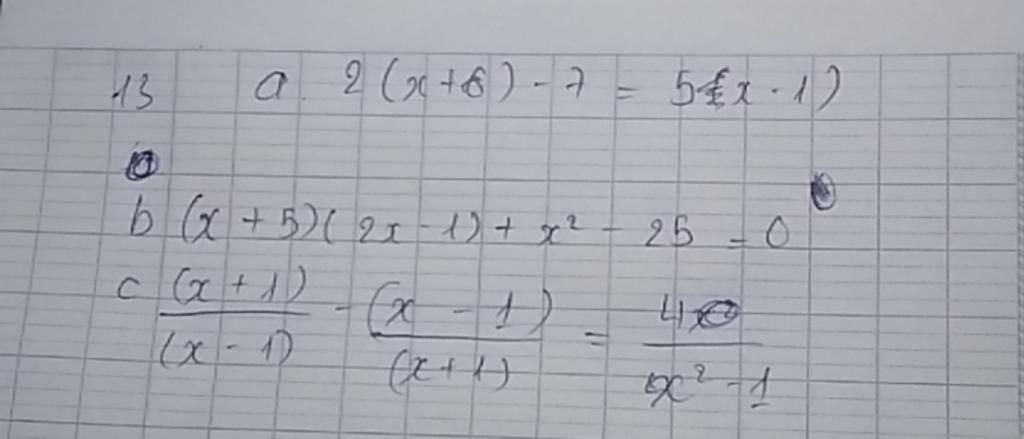 13 a 2(x+6)-7 = 5(x-1)
b (x+5)(2x-1)+x²-25=0
c (x+1)/(x-1) - (x-1)/(x+1) = 4/(x²-1)